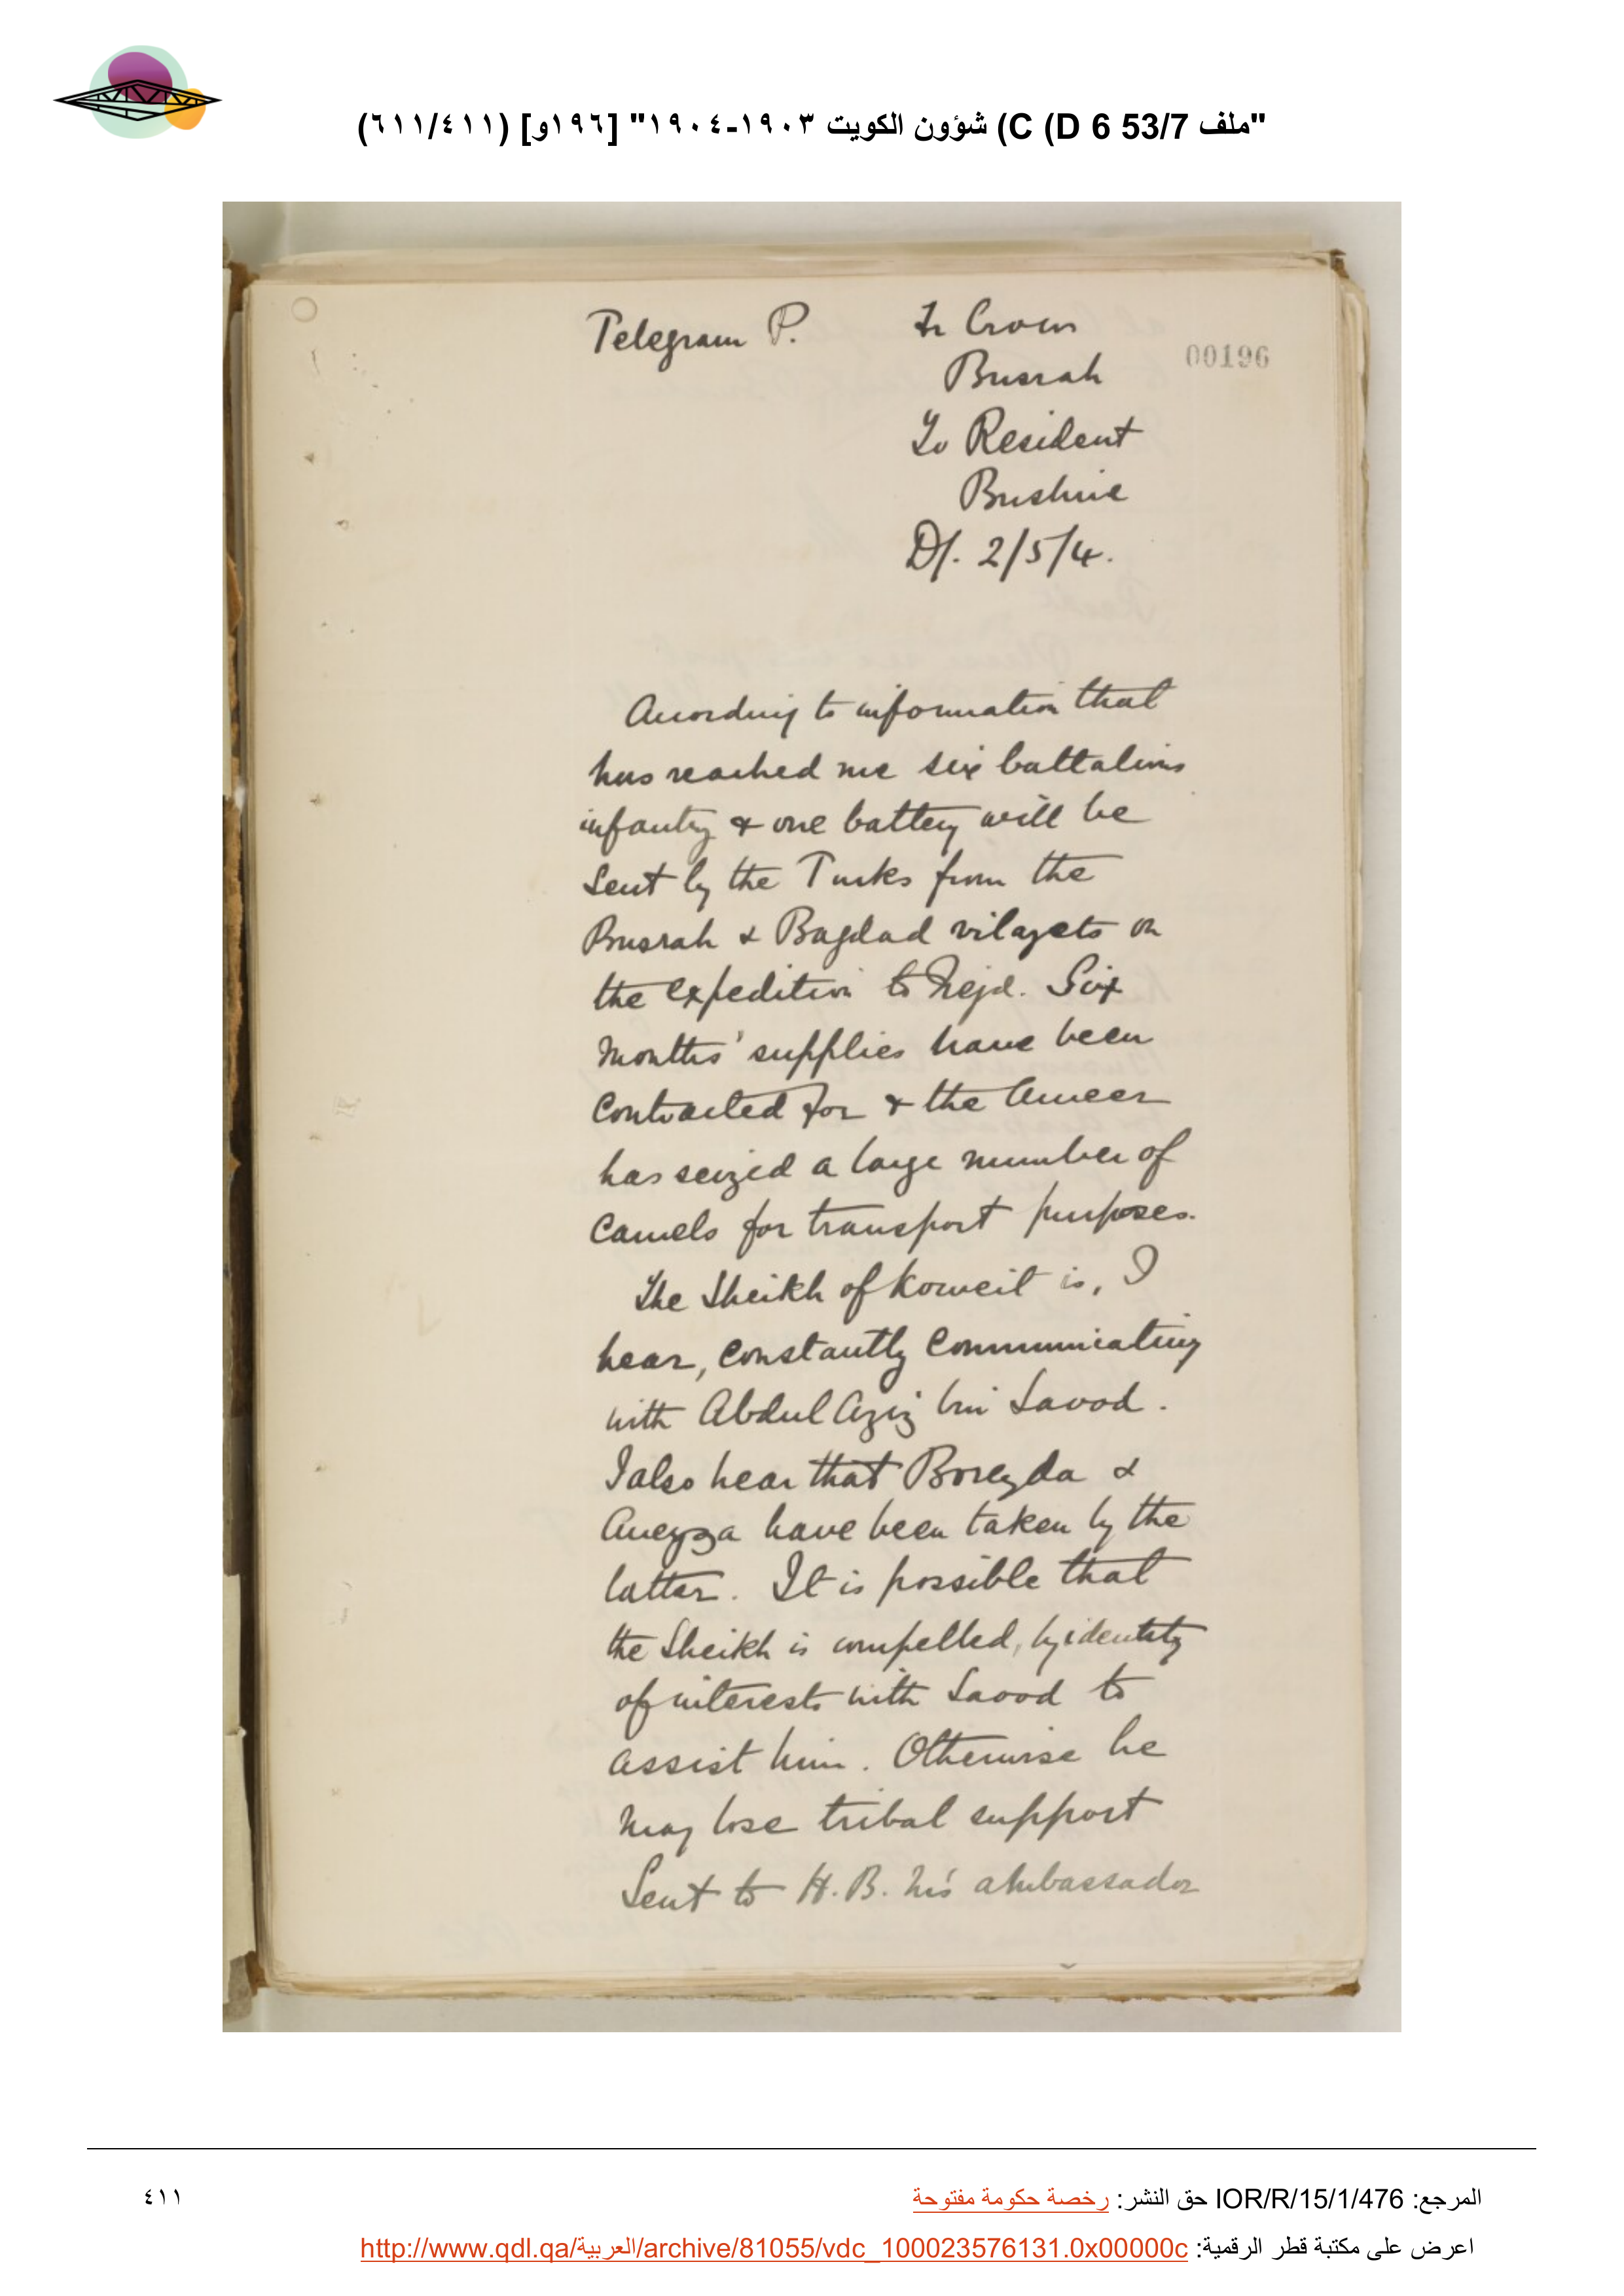 "ملف 53/7 C (D 6) شؤون الكويت ١٩٠٣-١٩٠٤" [١٩٦و] (٦١١/٤١١)
Telegram P.
Fr Crow
Busrah
00196
To Resident
Bushire
D/. 2/5/4.
According to information that
has reached me six battalions
infantry & one battery will be
sent by the Turks from the
Busrah & Bagdad vilayets on
the expedition to Nejd. Six
months' supplies have been
contracted for & the Ameer
has seized a large number of
camels for transport purposes.
The Sheikh of Koweit is, I
hear, constantly communicating
with Abdul Aziz bin Saood.
I also hear that Boreyda &
Aneyza have been taken by the
latter. It is possible that
the Sheikh is compelled, by identity
of interests with Saood to
assist him. Otherwise he
may lose tribal support
Sent to H.B. M's ambassador
المرجع: IOR/R/15/1/476 حق النشر: رخصة حكومة مفتوحة
٤١١
اعرض على مكتبة قطر الرقمية: http://www.qdl.qa/العربية/archive/81055/vdc_100023576131.0x00000c